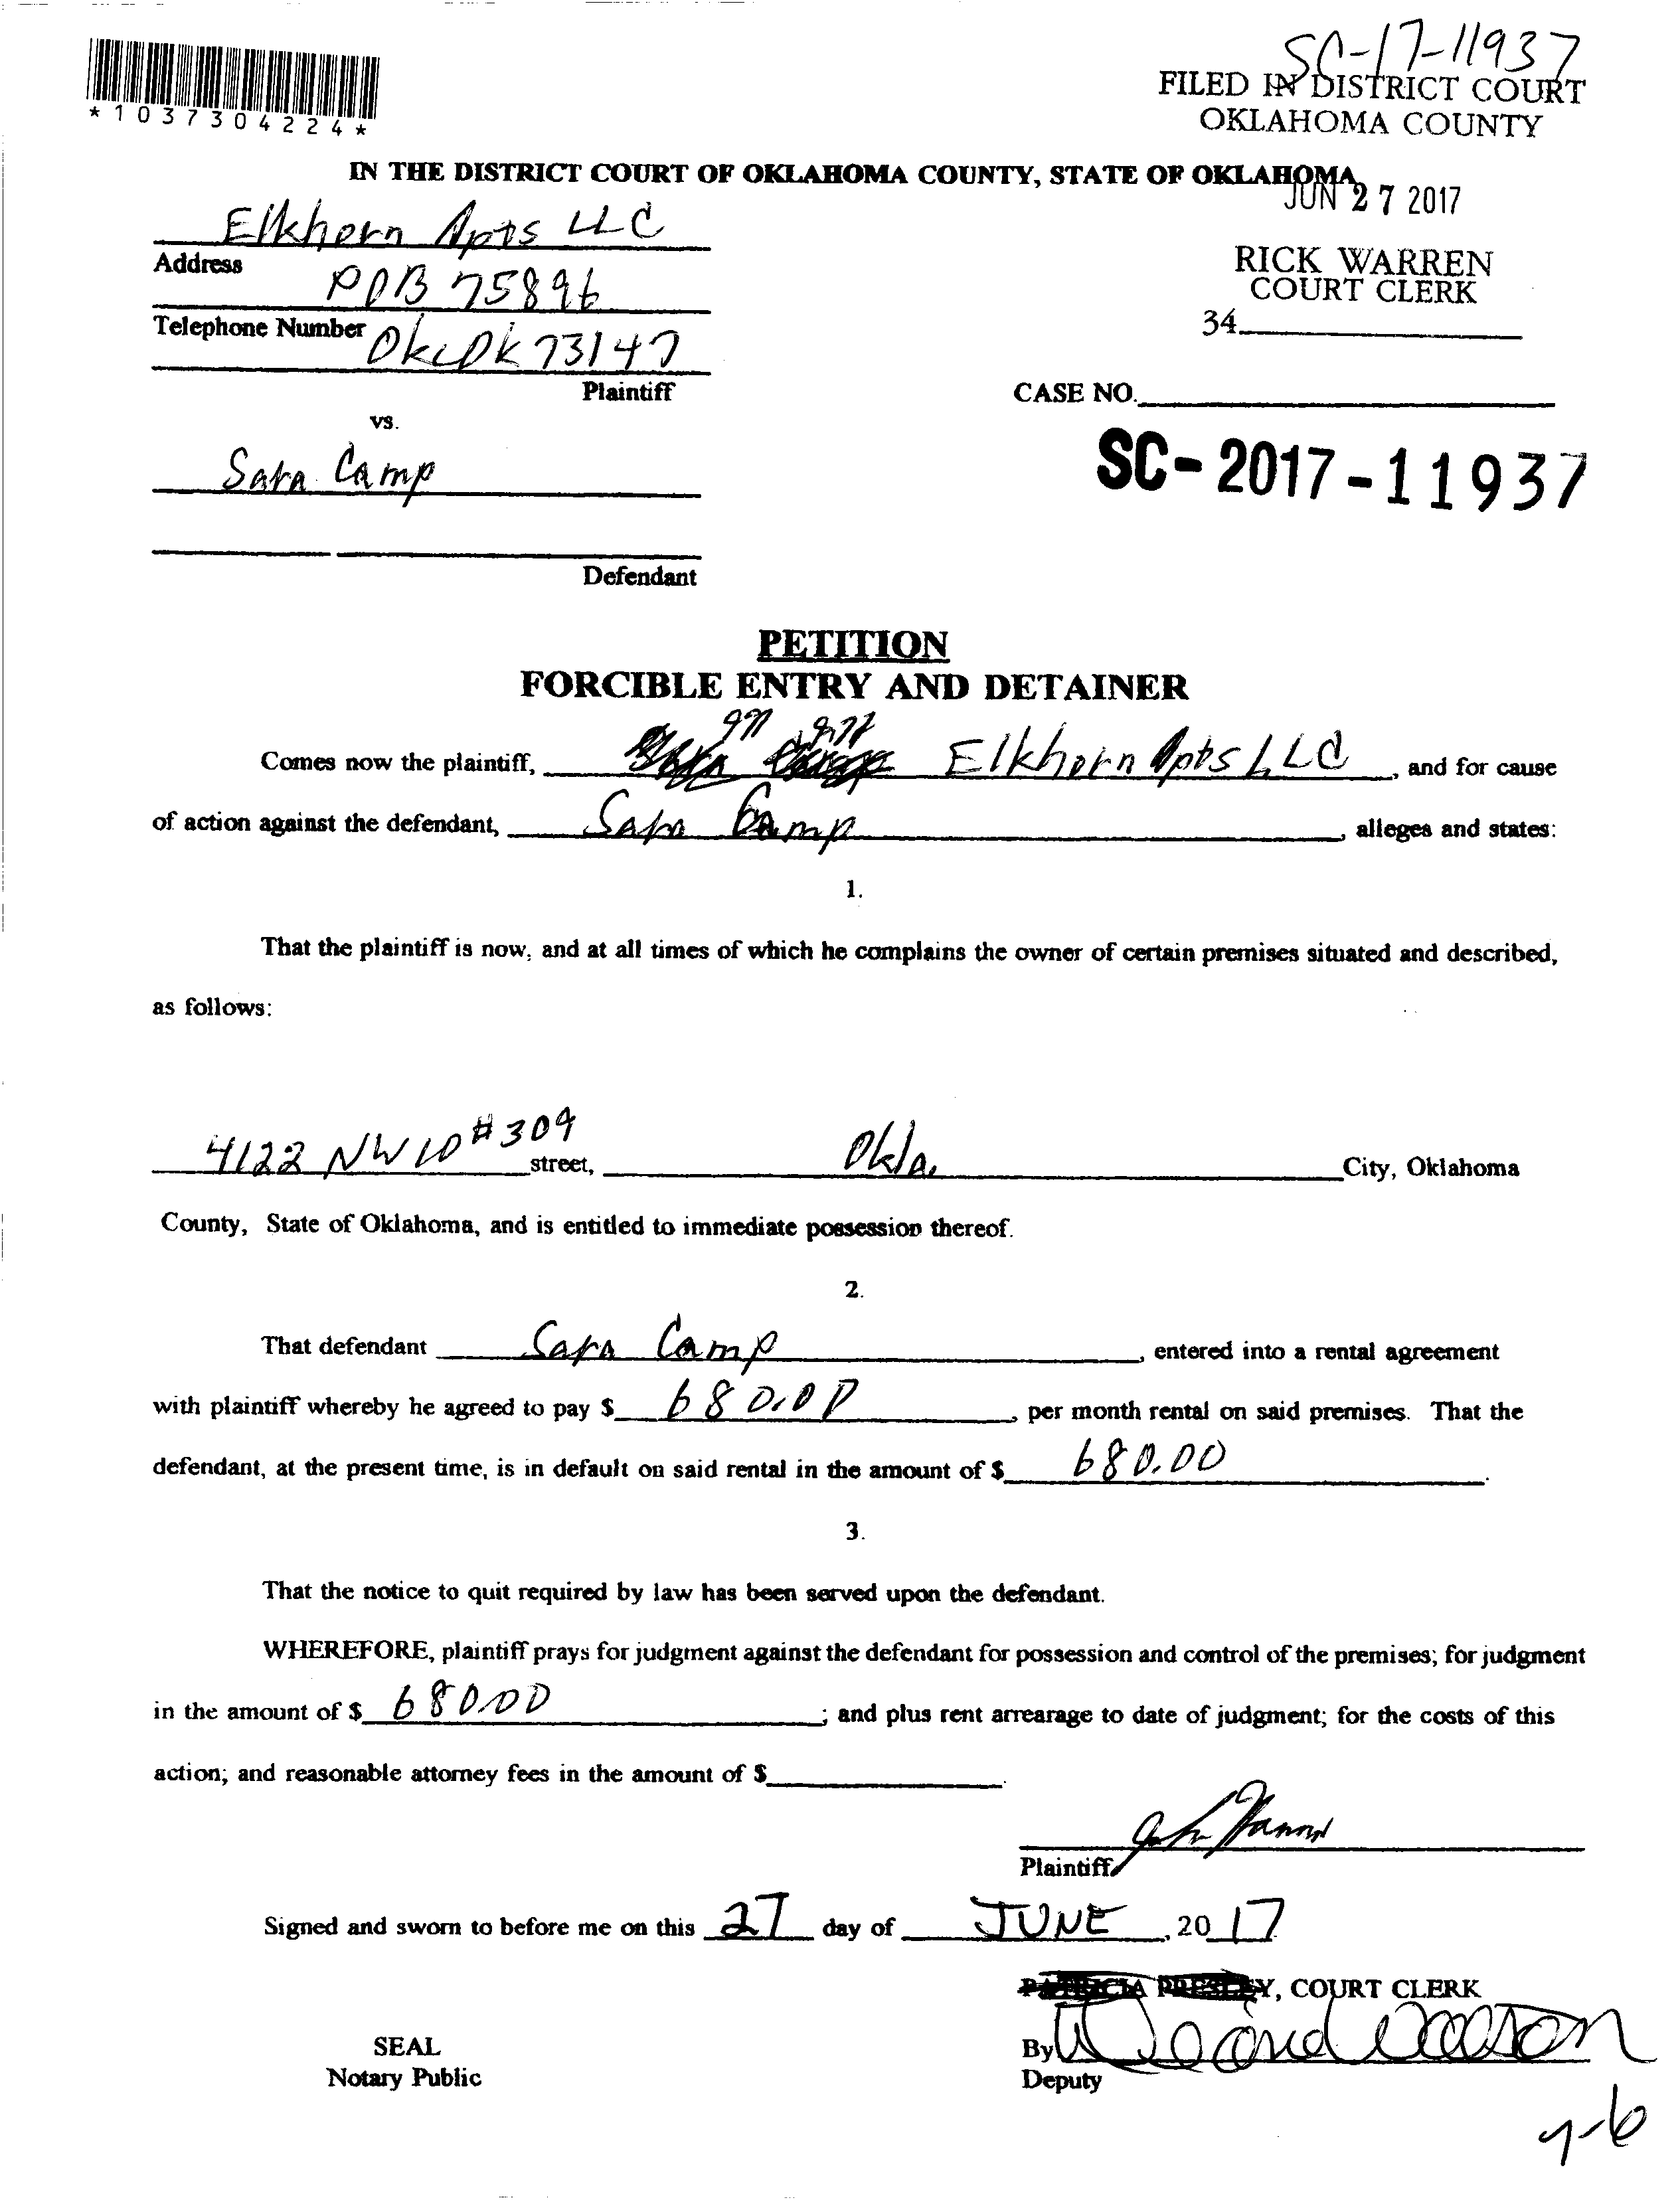 SC-17-11937
*1037304224*
FILED IN DISTRICT COURT
OKLAHOMA COUNTY
IN THE DISTRICT COURT OF OKLAHOMA COUNTY, STATE OF OKLAHOMA
JUN 27 2017
Elkhorn Apts LLC
RICK WARREN
COURT CLERK
Address
POB 75896
34
Telephone Number
OKC OK 73147
Plaintiff
CASE NO.
vs.
SC-2017-11937
Sara Camp
Defendant
PETITION
FORCIBLE ENTRY AND DETAINER
Comes now the plaintiff, Elkhorn Apts LLC, and for cause
of action against the defendant, Sara Camp, alleges and states:
1.
That the plaintiff is now, and at all times of which he complains the owner of certain premises situated and described,
as follows:
4122 NW 10 #309 street, Okla. City, Oklahoma
County, State of Oklahoma, and is entitled to immediate possession thereof.
2.
That defendant Sara Camp, entered into a rental agreement
with plaintiff whereby he agreed to pay $ 680.00, per month rental on said premises. That the
defendant, at the present time, is in default on said rental in the amount of $ 680.00.
3.
That the notice to quit required by law has been served upon the defendant.
WHEREFORE, plaintiff prays for judgment against the defendant for possession and control of the premises; for judgment
in the amount of $ 680.00; and plus rent arrearage to date of judgment; for the costs of this
action; and reasonable attorney fees in the amount of $.
Plaintiff
Signed and sworn to before me on this 27 day of JUNE, 2017
PATRICIA PRESLEY, COURT CLERK
SEAL
By
Notary Public
Deputy
7-6